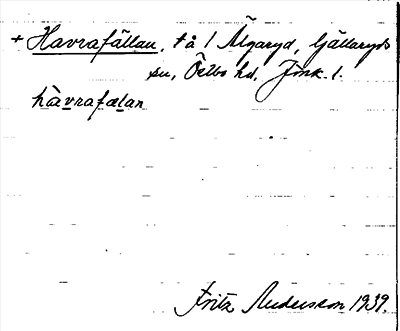 + Havrafällan, tå 1 Älgaryd, Gällaryds
sn, Östbo hd. Jönk. l.
hàvrafælan
Fritz Andersson 1939.